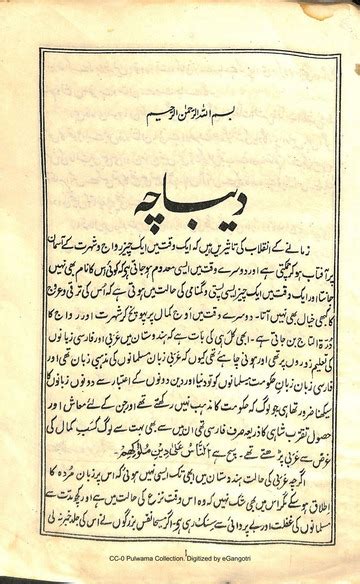 بسم اللہ الرحمٰن الرحیم
دیباچہ
زمانے کے انقلاب کی تاثیریں ہیں کہ ایک وقت میں ایک چیز رواج و شہرت کے آسمان
پر آفتاب ہو کر چمکتی ہے اور دوسرے وقت میں ایسی معدوم ہو جاتی ہے کہ کوئی اس کا نام بھی نہیں
جانتا اور ایک وقت میں ایک چیز ایسی پستی و گمنامی کی حالت میں ہوتی ہے کہ اُس کی ترقی و عروج
کا کبھی خیال بھی نہیں آتا۔ دوسرے وقت میں اوج کمال پر پہونچ کر شہرت اور رواج کا
دُرّۃ التاج بن جاتی ہے۔ ابھی کل ہی کی بات ہے کہ ہندوستان میں عربی اور فارسی زبانوں
کی تعلیم زوروں پر تھی اور ہونی چاہئے تھی کیوں کہ عربی زبان مسلمانوں کی مذہبی زبان تھی اور
فارسی زبان زبانِ حکومت مسلمانوں کو تو دنیا اور دین دونوں کے اعتبار سے دونوں زبانوں کا
سیکھنا ضرور تھا ہی جو لوگ کہ حکومت کا مذہب نہیں رکھتے تھے اور جن کے لئے معاش اور
حصول تقرب شاہی کا ذریعہ صرف فارسی تھی ان میں سے بھی بہت سے لوگ کسب کمال کی
غرض سے عربی پڑھتے تھے۔ سچ ہے اَلنَّاسُ عَلٰی دِیْنِ مُلُوْکِهِمْ
اگرچہ عربی کی حالت ہندوستان میں ابھی تک ایسی نہیں ہوئی کہ اس پر زبان مُردہ کا
اطلاق ہو سکے مگر اس میں بھی شک نہیں کہ وہ اس وقت نزع کی حالت میں ہے اور کچھ مدت سے
مسلمانوں کی غفلت اور بے پروائی سے سسک رہی ہو۔ اگر مسیحا نفس بزرگوں نے اس کی جلد خبر نہ لی
1
CC-0 Pulwama Collection. Digitized by eGangotri